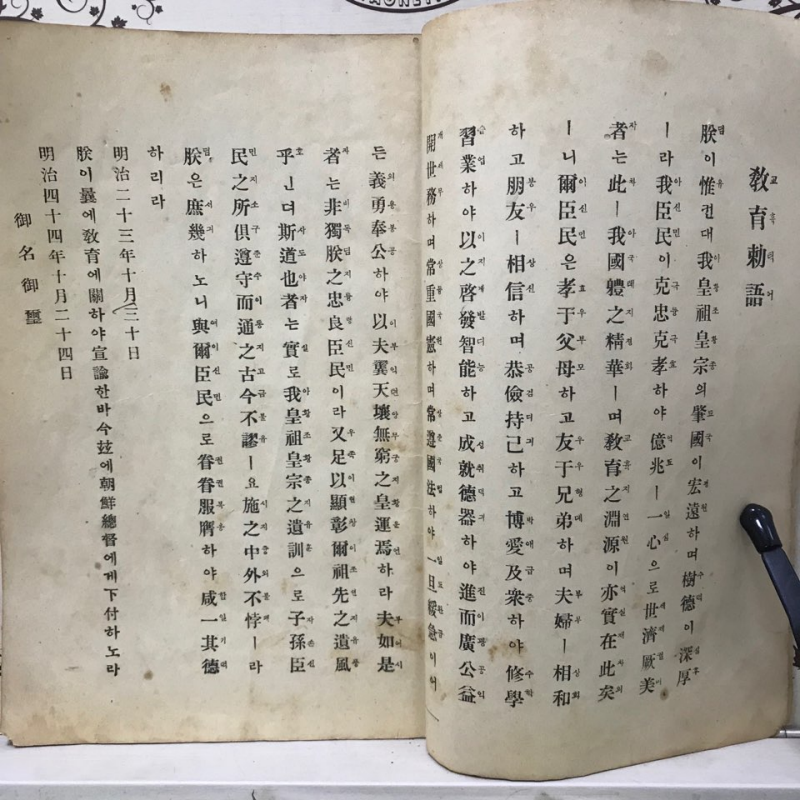 敎育勅語
朕이惟컨대我皇祖皇宗의肇國이宏遠하며樹德이深厚
ㅣ라我臣民이克忠克孝하야億兆ㅣ一心으로世濟厥美
者는此ㅣ我國軆之精華ㅣ며敎育之淵源이亦實在此矣
ㅣ니爾臣民은孝于父母하고友于兄弟하며夫婦ㅣ相和
하고朋友ㅣ相信하며恭儉持己하고博愛及衆하야修學
習業하야以之啓發智能하고成就德器하야進而廣公益
開世務하며常重國憲하며常遵國法하야一旦緩急이어
든義勇奉公하야以夫翼天壤無窮之皇運焉하라夫如是
者는非獨朕之忠良臣民이라又足以顯彰爾祖先之遺風
乎ㅣㄴ뎌斯道也者는實로我皇祖皇宗之遺訓으로子孫臣
民之所俱遵守而通之古今不謬ㅣ요施之中外不悖ㅣ라
朕은庶幾하노니與爾臣民으로眷眷服膺하야咸一其德
하리라
明治二十三年十月三十日
朕이曩에敎育에關하야宣諭한바今玆에朝鮮總督에게下付하노라
明治四十四年十月二十四日
御名御璽